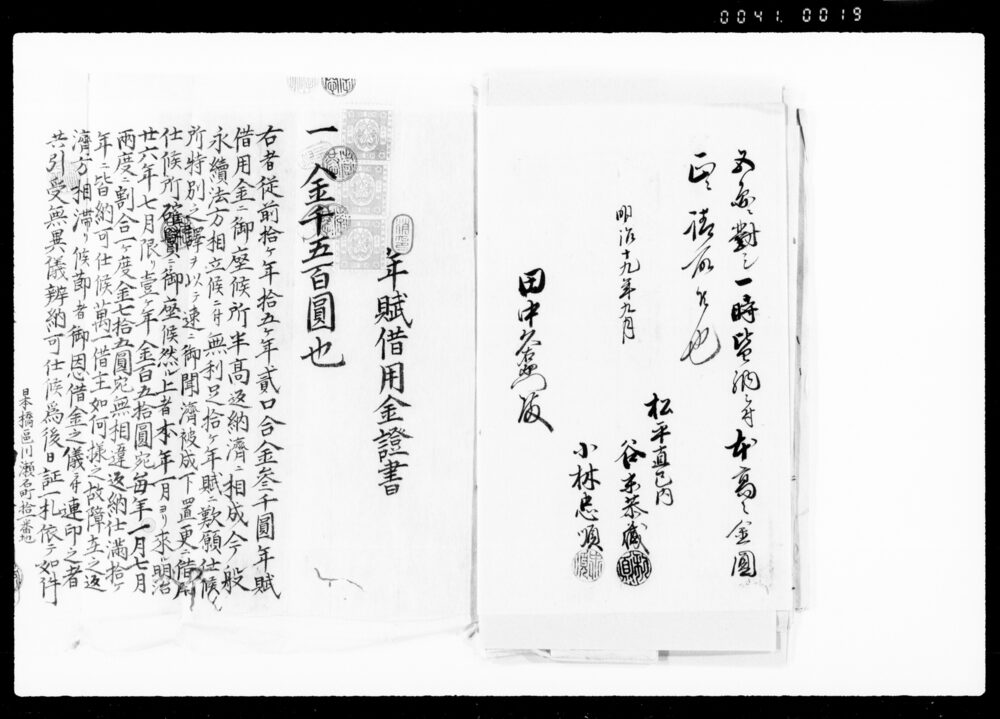 0041. 0019
對シ一時皆納ニ付本高之金圓
正ニ請取候也
明治十九年九月
松平直巳内
谷東恭蔵
小林忠順
田中 殿
年賦借用金證書
一金千五百圓也
右者従前拾ヶ年拾五ヶ年貳口合金叁千圓年賦
借用金ニ御座候所半高返納濟ニ相成今般
永續法方相立候ニ付無利足拾ヶ年賦ニ歎願仕候
所特別之譯ヲ以テ速ニ御聞濟被成下置更ニ借用
仕候所確實ニ御座候然ル上者本年一月ヨリ来ル明治
廿六年七月限リ壹ヶ年金百五拾圓宛毎年一月七月
兩度ニ割合一ヶ度金七拾五圓宛無相違返納仕満拾ヶ
年ニ皆納可仕候萬一借主如何様之故障立之返
濟方相滞リ候節者御因心借金之儀ニ付連印之者
共引受無異儀辨納可仕候為後日証一札依テ如件
日本橋區川瀬石町拾壱番地